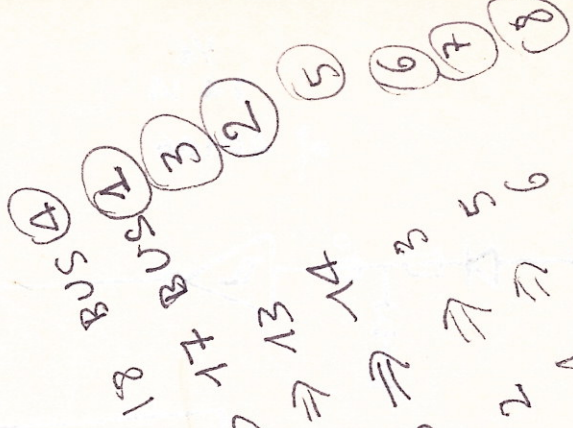 18 BUS 4
17 BUS 1
⇒ 13 3
⇒ 14 2
2 ⇒ 3 5
⇒ 5 6
6 7
8